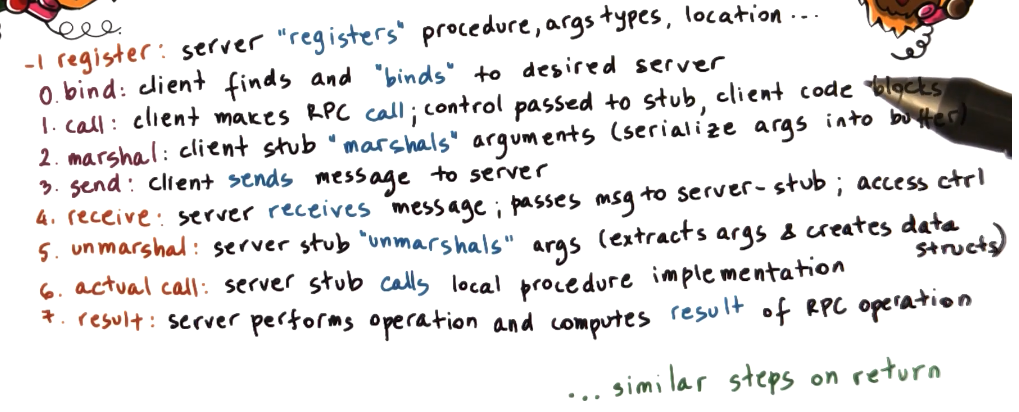 -1 register: server "registers" procedure, args types, location ...
0. bind: client finds and "binds" to desired server
1. call: client makes RPC call; control passed to stub, client code blocks
2. marshal: client stub "marshals" arguments (serialize args into buffer)
3. send: client sends message to server
4. receive: server receives message; passes msg to server-stub; access ctrl
5. unmarshal: server stub "unmarshals" args (extracts args & creates data
structs)
6. actual call: server stub calls local procedure implementation
7. result: server performs operation and computes result of RPC operation
... similar steps on return